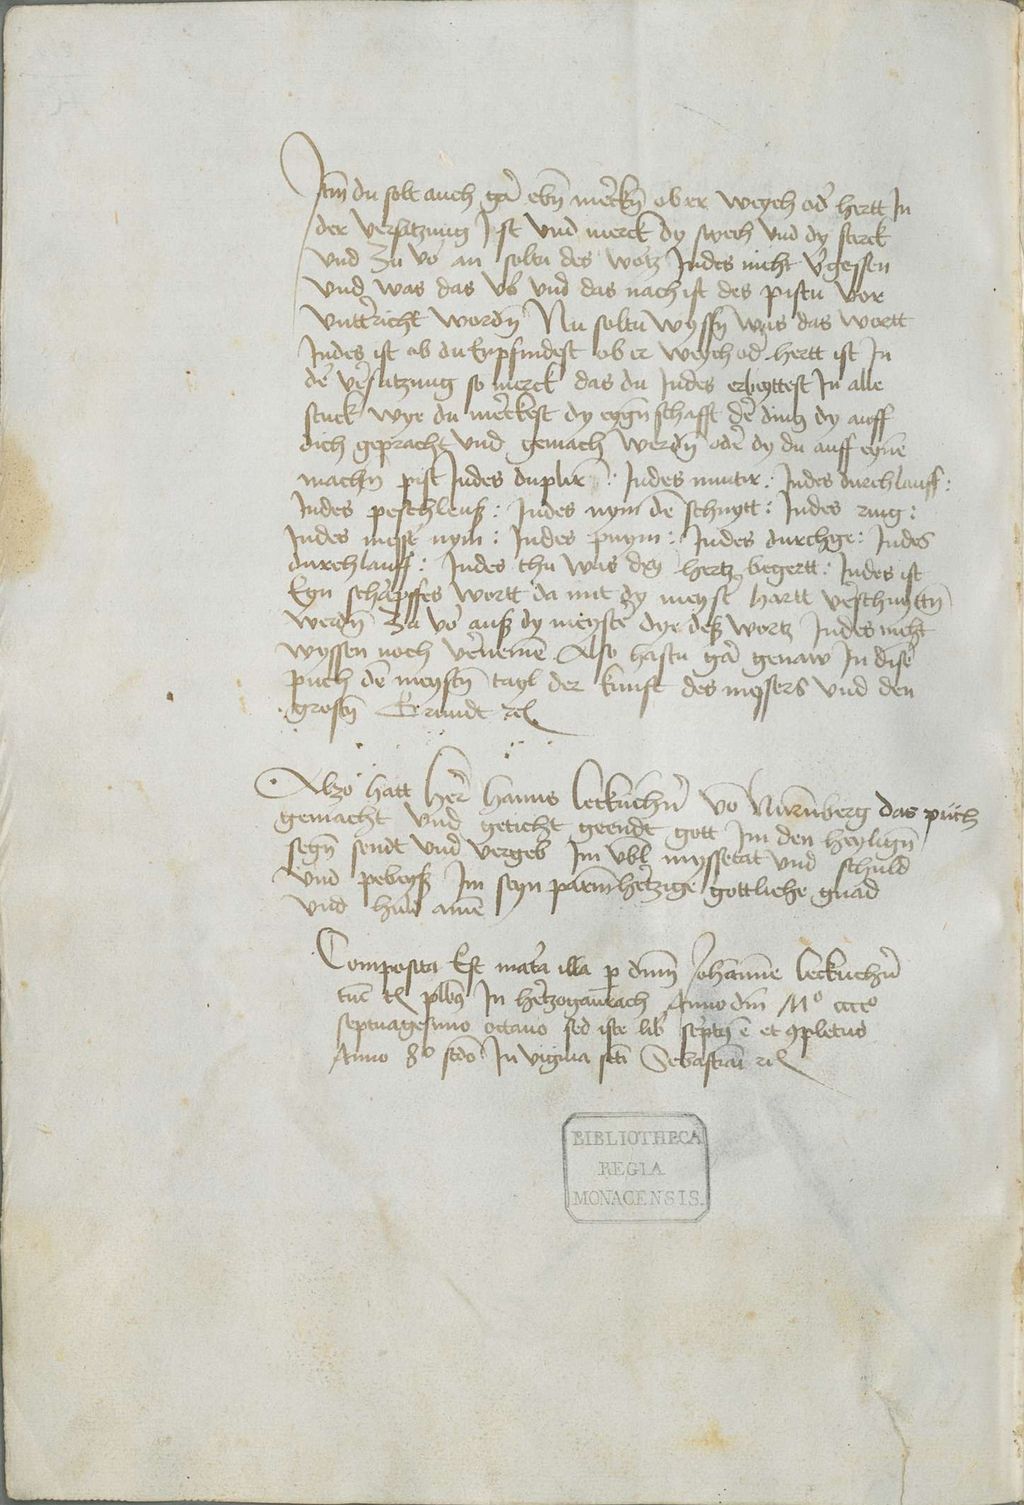 Itm du solt auch gar ebn merckn ob er weych od hertt In
der versatzung Ist vnd merck dy swech vnd dy sterck
vnd zu vor an soltu des wortz Indes nicht vgessen
vnd was das vor vnd das nach ist des pistu vor
vnttericht wordn Nu soltu wyssn was das wortt
Indes ist ob du Enpfindest ob er weych od hertt ist In
der versatzung so merck das du Indes erbeyttest In alle
stuck wye du merckest dy eygenschafft der ding dy auff
dich gepracht vnd gemach werdn oder dy du auff eynen
machn pist Indes duplir : Indes mutir : Indes durchlauff :
Indes peschleuß : Indes nym den schnytt : Indes ring :
Indes messer nym : Indes : Indes durchge : Indes
durchlauff : Indes thu was deyn hertz begertt : Indes ist
Eyn scharpffes wortt da mit dy meyster hartt verschnyttn
werdn Zu vor auß dy meyster dye deß wortz Indes nicht
wyssen noch vernemen Also hastu gar genaw In disem
puch den meystn tayl der kunst des messers vnd den
grostn Grundt etc
Also hatt her hanns leckuchner von Nurenberg das puch
gemacht vnd geticht geendt gott Im den heylign
segn sendt vnd vergeb Im vbl myssetat vnd schuld
vnd peweyß Im seyn parmhertzige gottliche gnad
vnd huld amen
Composita Est matera illa p dnm Johannem leckuchner
tunc plbm In hertzogaurach Anno dni Mo cccco
septuagesimo octauo sed iste lib scriptus e et completus
Anno 8o scdo In vigilia scti Sebastiani etc
BIBLIOTHECA
REGIA
MONACENSIS.